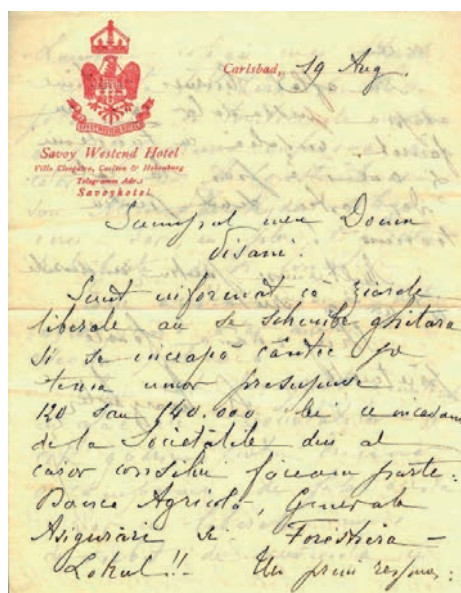 Carlsbad, 19 Aug.
SAVOY WESTEND HOTEL
Savoy Westend Hotel
Villa Cleopatra, Carlton & Hohenburg
Telegramm Adr.:
Savoyhotel
Scumpul meu Domn
Disanu.
Sunt informat că ziarele
liberale au se schimbe ghitara
și se inceapă cântec pe
tema unor presupuse
120 sau 140.000 lei ce incasam
de la Societățile din al
caror consiliu făceam parte:
Banca Agricolă, Generala
Asigurări și Forestiera -
Lokul!! Un prim respuns: